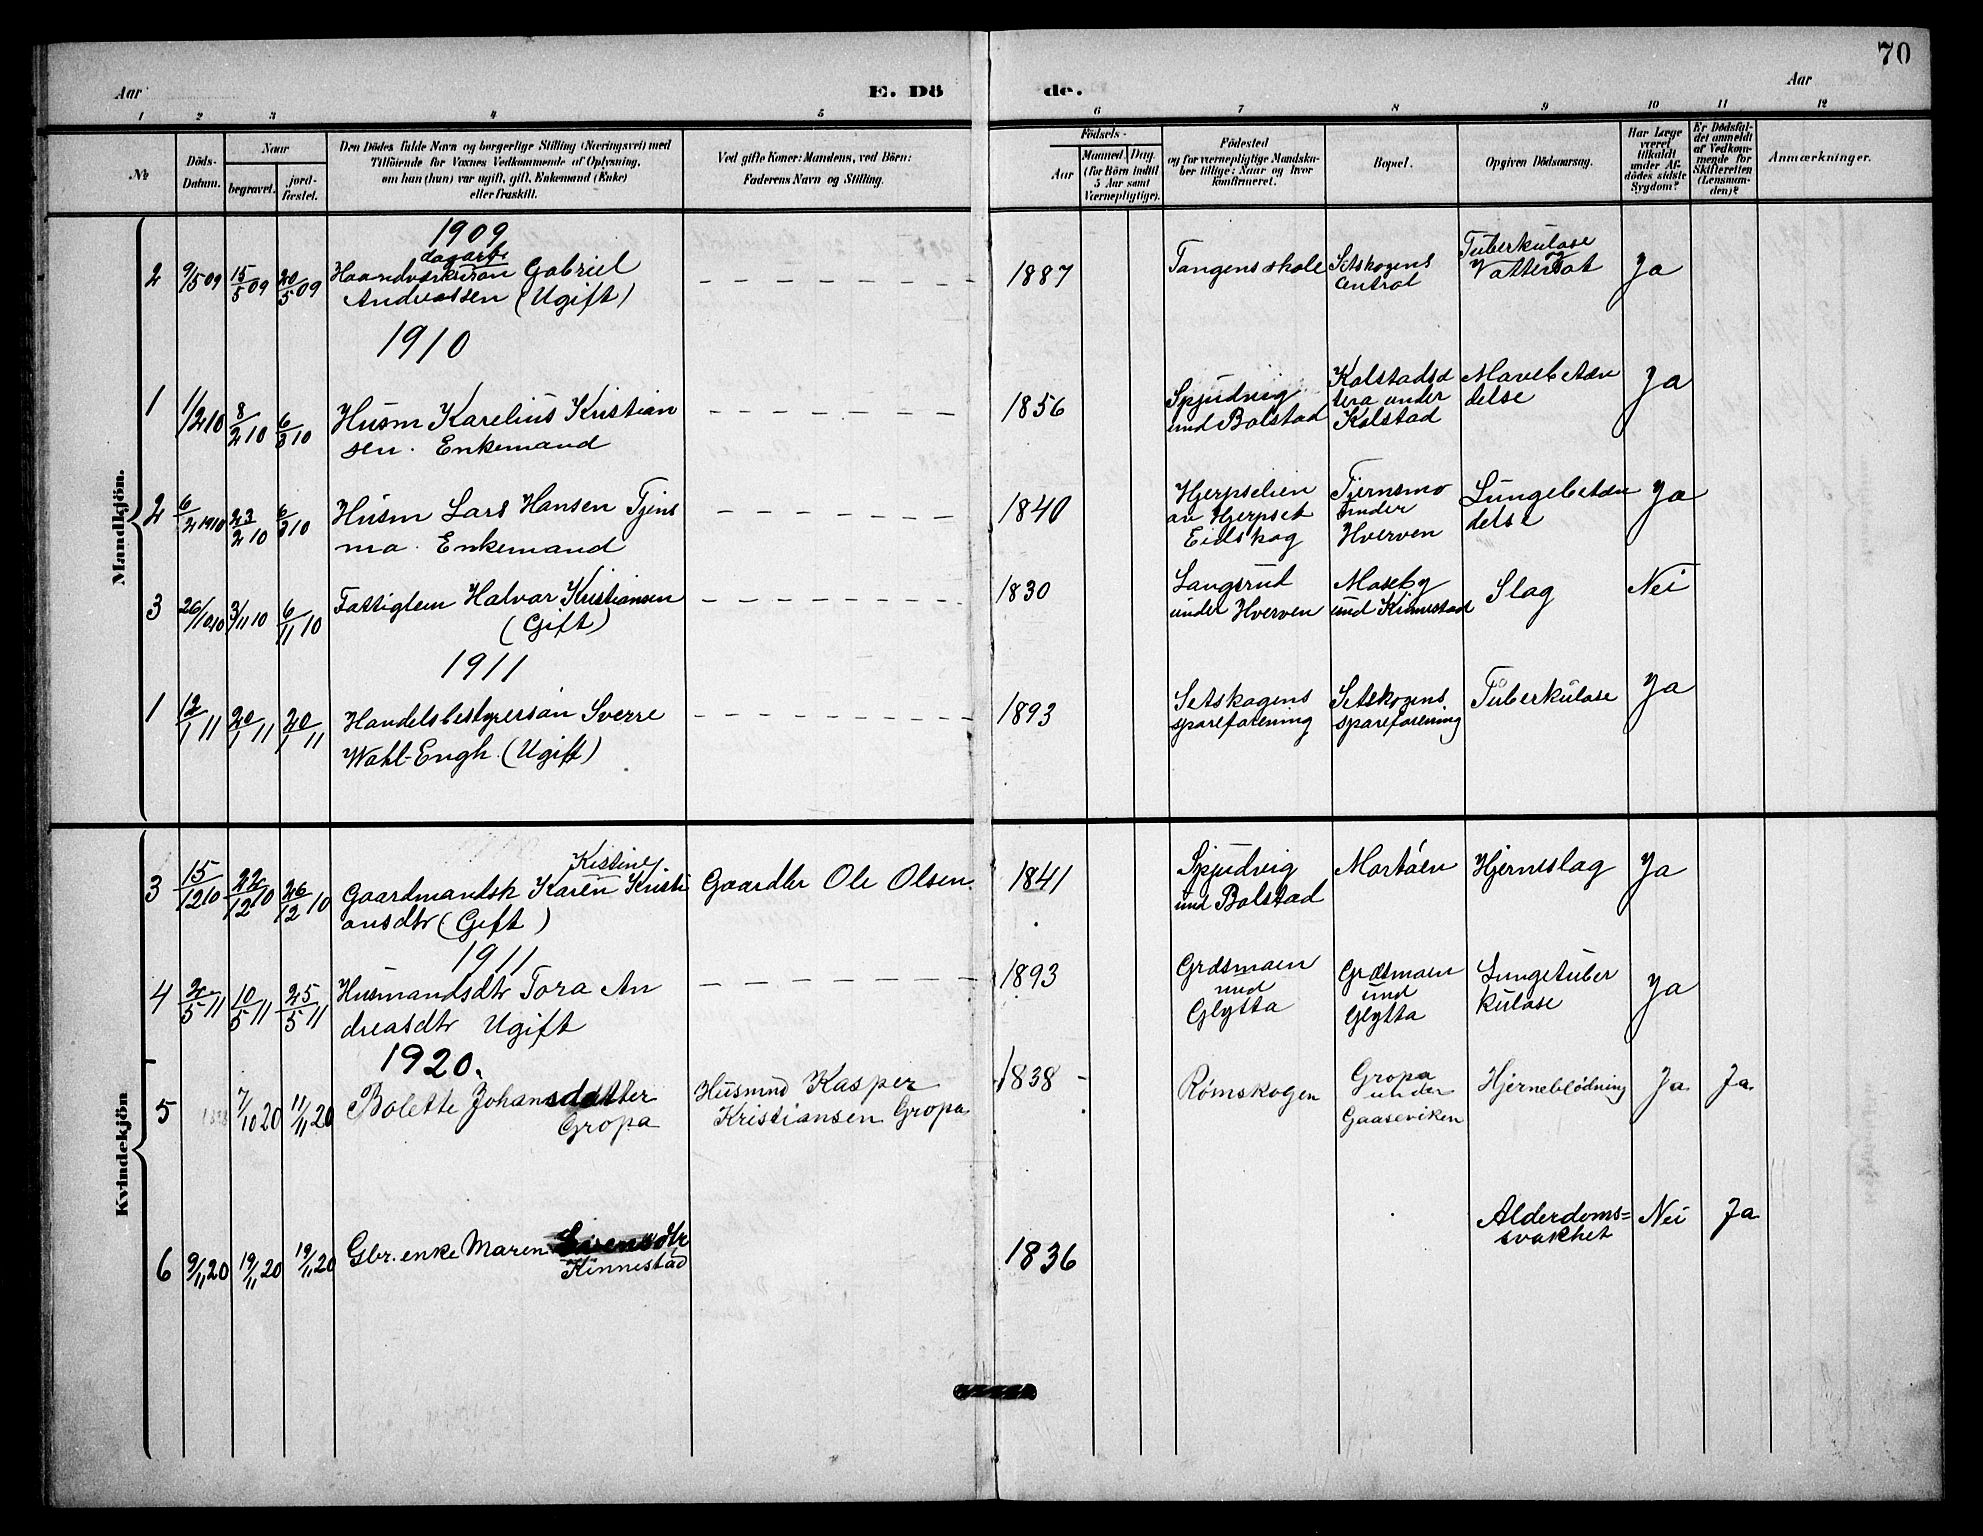 70
Aar
E. Dö
de.
Aar
1 2 3 4 5 6 7 8 9 10 11 12
№
Döds-
Datum.
Naar
begravet.
jord-
fæstet.
Den Dödes fulde Navn og borgerlige Stilling (Næringsvei) med
Tilföiende for Voxnes Vedkommende af Oplysning,
om han (hun) var ugift, gift, Enkemand (Enke)
eller fraskilt.
Ved gifte Koner: Mandens, ved Börn:
Faderens Navn og Stilling.
Födsels-
Aar
Maaned. Dag.
(for Börn indtil
5 Aar samt
Værnepligtige).
Födested
og for værnepligtige Mandska-
ber tillige: Naar og hvor
konfirmeret.
Bopæl.
Opgiven Dödsaarsag.
Har Læge
været
tilkaldt
under Af-
dödes sidste
Sygdom?
Er Dödsfal-
det anmeldt
af Vedkom-
mende for
Skifteretten
(Lensman-
den)?
Anmærkninger.
Mandkjön.
1909
dagarb.
2 9/5 09 15/5 09 20/5 09 Haandværkersøn Gabriel
Andreassen (Ugift)
1887 Tangen skole Setskogens
Central
Tuberkulose
og
Vattersot Ja
1910
1 1/2 10 8/2 10 6/3 10 Husm Karelius Kristian
sen. Enkemand
1856 Spjudvig
und Bolstad
Kolstadsæ
tera under
Kolstad
Mavebetæn
delse Ja
2 6/2 1910 23/2 10 6/3 10 Husm Lars Hansen Tjens
mo. Enkemand
1840 Hjerpselien
av Hjerpset
Eidskog
Tjernsmo
under
Hverven
Lungebetæn
delse Ja
3 26/10 10 3/11 10 6/11 10 Fattiglem Halvor Kristiansen
(Gift)
1830 Langsrud
under Hverven
Moseby
und Kinnestad
Slag Nei
1911
1 12/1 11 20/1 11 20/1 11 Handelsbestyrersøn Sverre
Wahl-Engh (Ugift)
1893 Setskogens
spareforening
Setskogens
spareforening
Tuberkulose Ja
Kvindekjön
Kistine
3 15/12 10 22/12 10 26/12 10 Gaardmandsk Karen Kristi
ansdtr (Gift)
Gaardbr Ole Olsen.
1841 Spjudvig
und Bolstad
Mortåen Hjerneslag Ja
1911
4 2/5 11 10/5 11 25/5 11 Husmandsdtr Tora An
dreasdtr Ugift
1893 Græsmoen
und
Glytta
Græsmoen
und
Glytta
Lungetuber
kulose Ja
1920.
5 7/10 20 11/11 20 Bolette Johansdatter
Gropa
Husmnd Kasper
Kristiansen Gropa
1838 Rømskogen
Gropa
under
Gaaseviken
Hjerneblödning Ja Ja
6 9/11 20 19/11 20 19/11 20 Gbr. enke Maren
Kinnestad
1836
Alderdoms=
svakhet Nei Ja